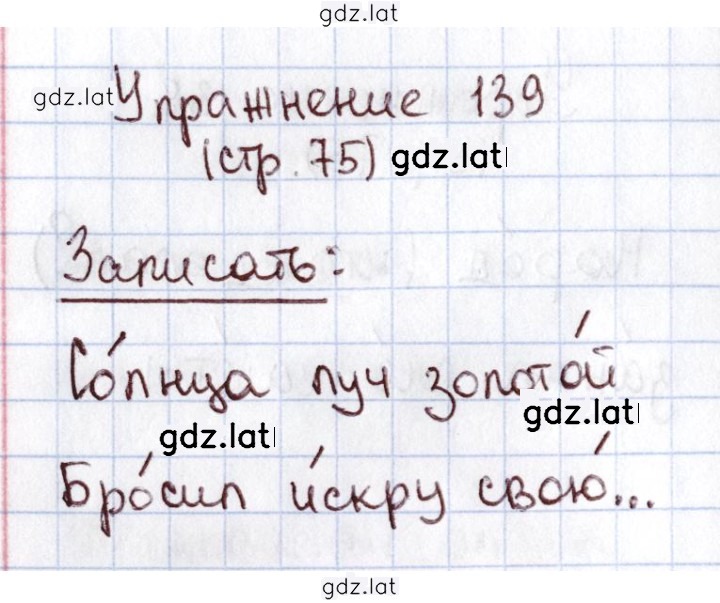 gdz.lat
gdz.lat Упражнение 139
(стр. 75) gdz.lat
Записать:
Со́лнца луч золото́й
gdz.lat gdz.lat
Бро́сил и́скру свою́...
gdz.lat